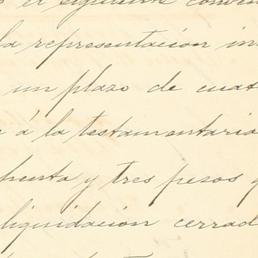 el siguiente conven
la representación in
un plazo de cuat
á la testamentaria
y tres pesos y
liquidación cerrad